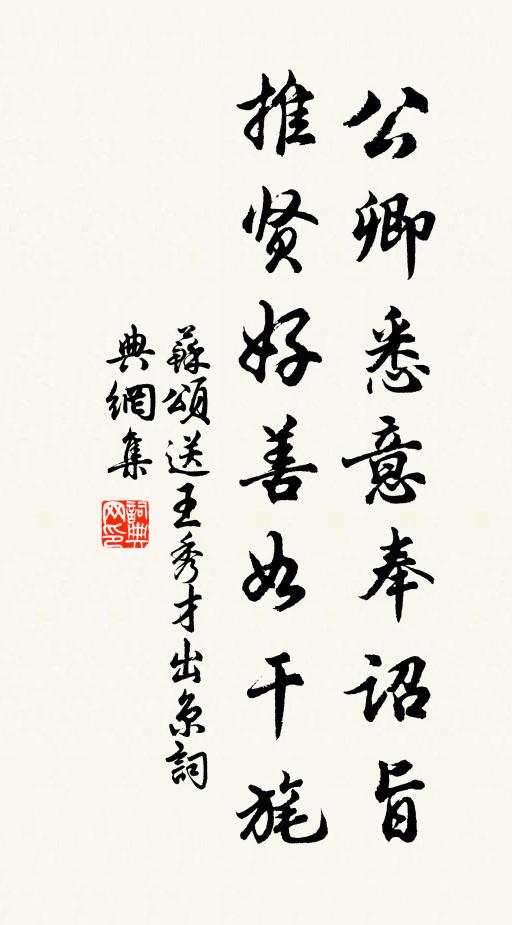 公卿悉意奉诏旨
推贤好善如干旄
蘇頌送王秀才出京詞
典網集
詞典网印